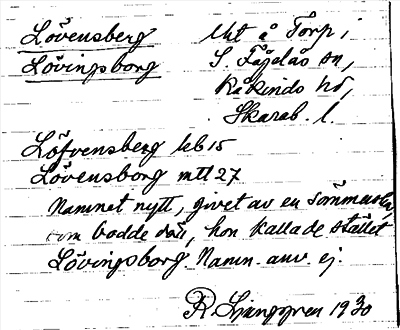 Lövensberg Utt å Torp, i
Lövingsborg S. Fågelås sn,
Kåkinds hd,
Skarab. l.
Löfvensberg hb 15
Lövensborg mtl 27
Namnet nytt, givet av en
som bodde där, hon kallade stället
Lövingsborg. Namn. anv. ej.
R. Ljunggren 1930